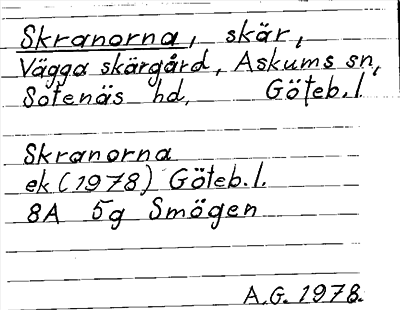 Skranorna, skär,
Vägga skärgård, Askums sn,
Sotenäs hd, Göteb. l.
Skranorna
ek (1978) Göteb. l.
8A 5g Smögen
A.G. 1978.